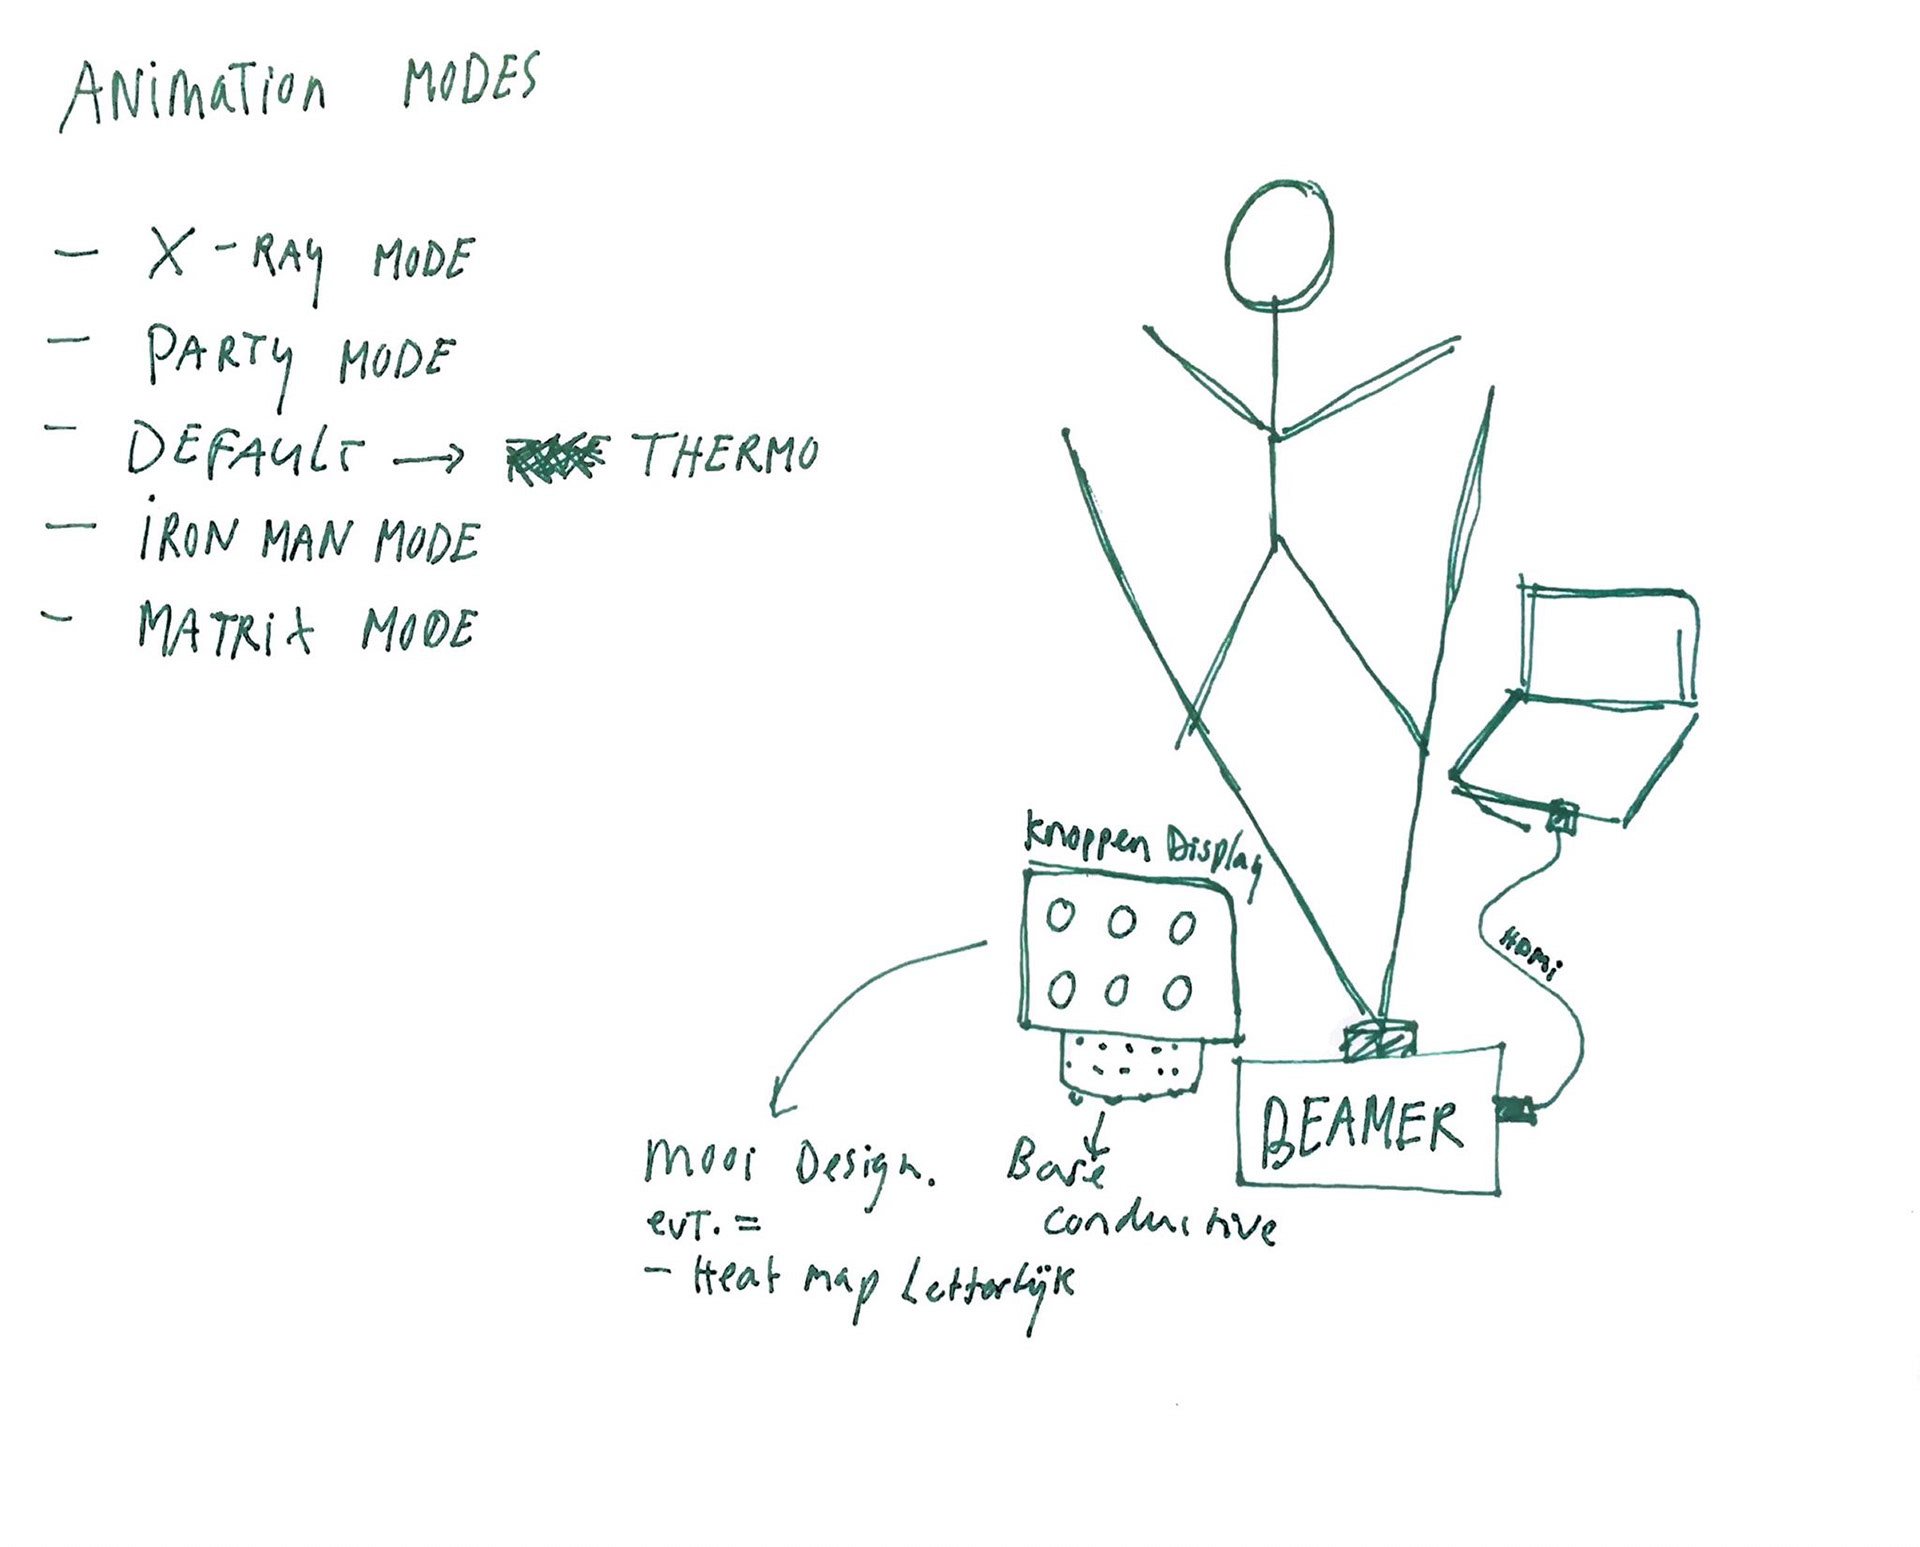 ANiMATiOn MODES
- X-RAY MODE
- PARTY MODE
- DEFAULT → THERMO
- iRON MAN MODE
- MATRiX MODE
Knoppen Display
HDMi
BEAMER
Mooi Design.
evt. =
- Heat map Letterlijk
Base
conductive